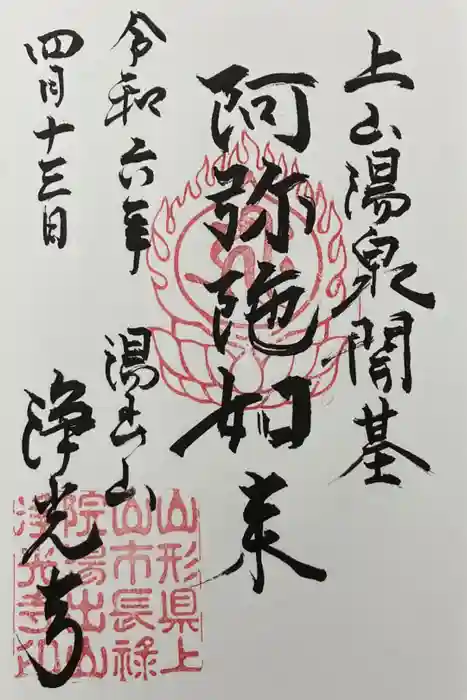 上山湯泉開基
阿弥陀如来
令和六年
四月十三日
湯出山
浄光寺
山形県上
山市長禄
院湯出山
浄光寺印